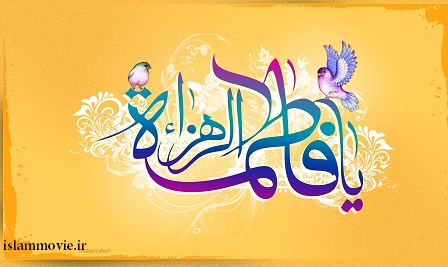 يا فاطمة الزهراء
islammovie.ir